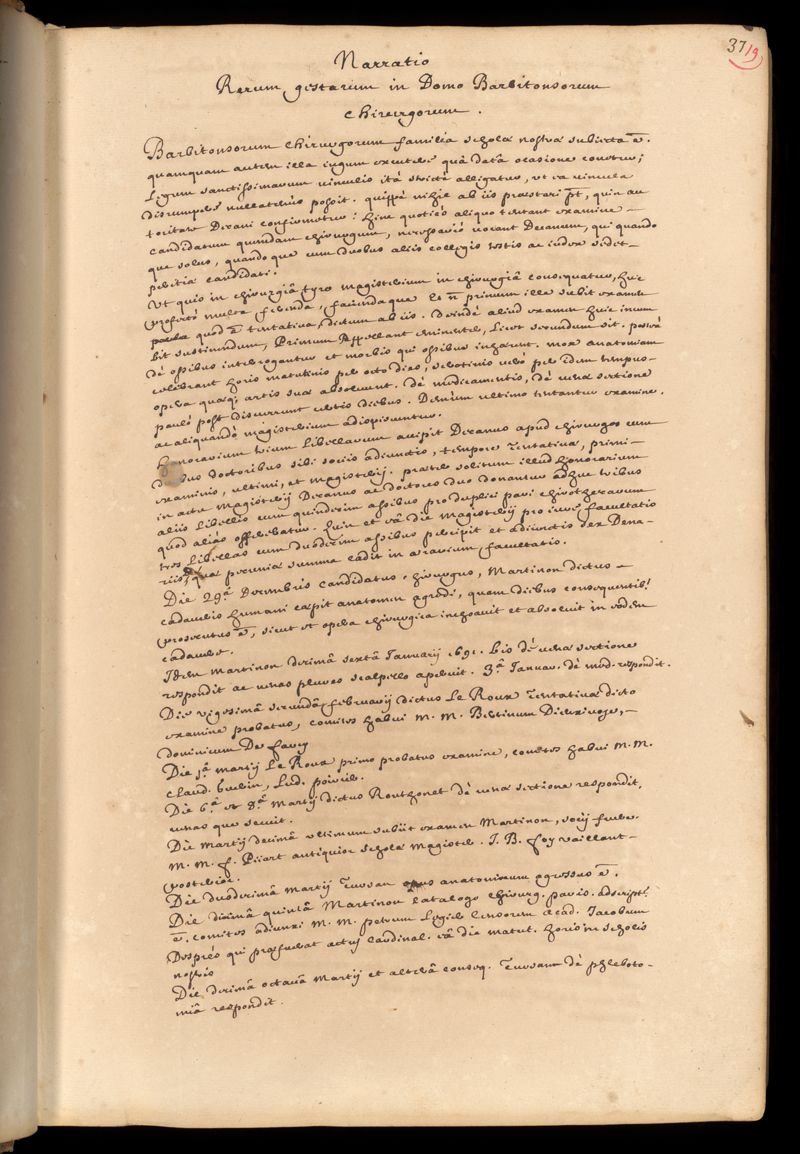 37 19
Narratio
Rerum gestarum in Domo Barbitonsorum
chirurgorum.
Barbitonsorum chirurgorum familia scholæ nostræ subiecta ē.
quamquam autem illa iugum excutere quâ datâ ocasione conetur;
Legum sanctissimarum vinculis ità strictè alligatur, vt ea vincula
disrumpere nullatenùs possit. quippè nihil ab iis præstari pt, quin au
toritate Decani confirmetur: hinc quotiés aliquo tentant examine
candidatum quemdam chirurgum, necessariò vocant Decanum, qui quando
que solus, quandoque cum duobus aliis collegis testis ac iudex sedet
peritiæ candidati.
Vt quis in chirurgiâ tyro magisterium in chirurgiâ consequatur, huic
profectò multa ferenda, faciendaque st n primum ille subit examen
quod ē tentativa dictum ab iis. Deindè aliud examen huic incum
bit sustinendum, Primum appellant eminenter, licet secundum sit. posteà
dè ossibus interrogantur et morbis qui ossibus inhærent. mox anatomiam
celebrant horis matutinis per octo dies, serotinis verò per idem tempus
opera quæq; artis suæ absoluunt. dè medicamentis, dè venæ sectione
pauló post discurrunt certis diebus. Demùm ultimo tentantur examine,
ac aliquandò magisterium adipiscuntur.
Honorarium trium Libellarum accipit Decanus apud chirurgos cum
duobus doctoribus sibi sociis adiunctis, tempore tentativæ, primi
examinis, ultimi, et magisterij. præter solitum illud honorarium
in actu magisterij Decanus ac doctores duo donantur adhuc tribus
aliis Libellis cum quindecim assibus pro duplici pari chirothecarum
quod aliàs offerebatur. Quin et eâ die magisterij pro iure facultatis
tres Libellas cum duodecim assibus percipit et adiunctis sex Dena
riis, quæ pecuniæ summa cadit in ærarium facultatis.
Die 29.â Decembris candidatus chirurgus, Martinon dictus
cadaveris humani cæpit anatomen agredi, quam diebus consequentib.
prosecutus ē, sicut et opera chirurgica inchoavit et absoluit in eodem
cadauere.
Idem Martinon decimâ sextâ Januarij 1691. bis dè venæ sectione
respondit ac venas plures scalpello aperuit. 3.â Januar. dè med. respondit.
Die vigesimâ secundâ februarij dictus Le Roux tentativæ dicto
examine probatus, comites habui M. M. Bertinum Dieuxivoye,
dominicum De farcy
Die 1.â Martij Le Roux primo probatus examine, comites habui M. M.
Claud. Guérin, Lud. poirier.
Die 6.â et 8.â Martij dictus Routhonet dè venæ sectione respondit,
venas que secuit.
Die Martij decimâ ultimum subiit examen Martinon, socij fuere
M. M. f. Piiart antiquior scholæ Magister. J. B. foy vaillant
posterior.
Die duodecimâ Martij Turean opus anatomicum agressus ē.
Die decimâ quintâ Martinon catalogo chirurg. paris. adscript.
ē. comites adiunxi M. M. petrum Legier Censorem Acad. Jacobum
Després qui præsuerat actus Cardinal. eâ die matut. horis in scholis
nostris
Die decimâ octauâ Martij et alterâ conseq. Tureant dè phleboto
miâ respondit.